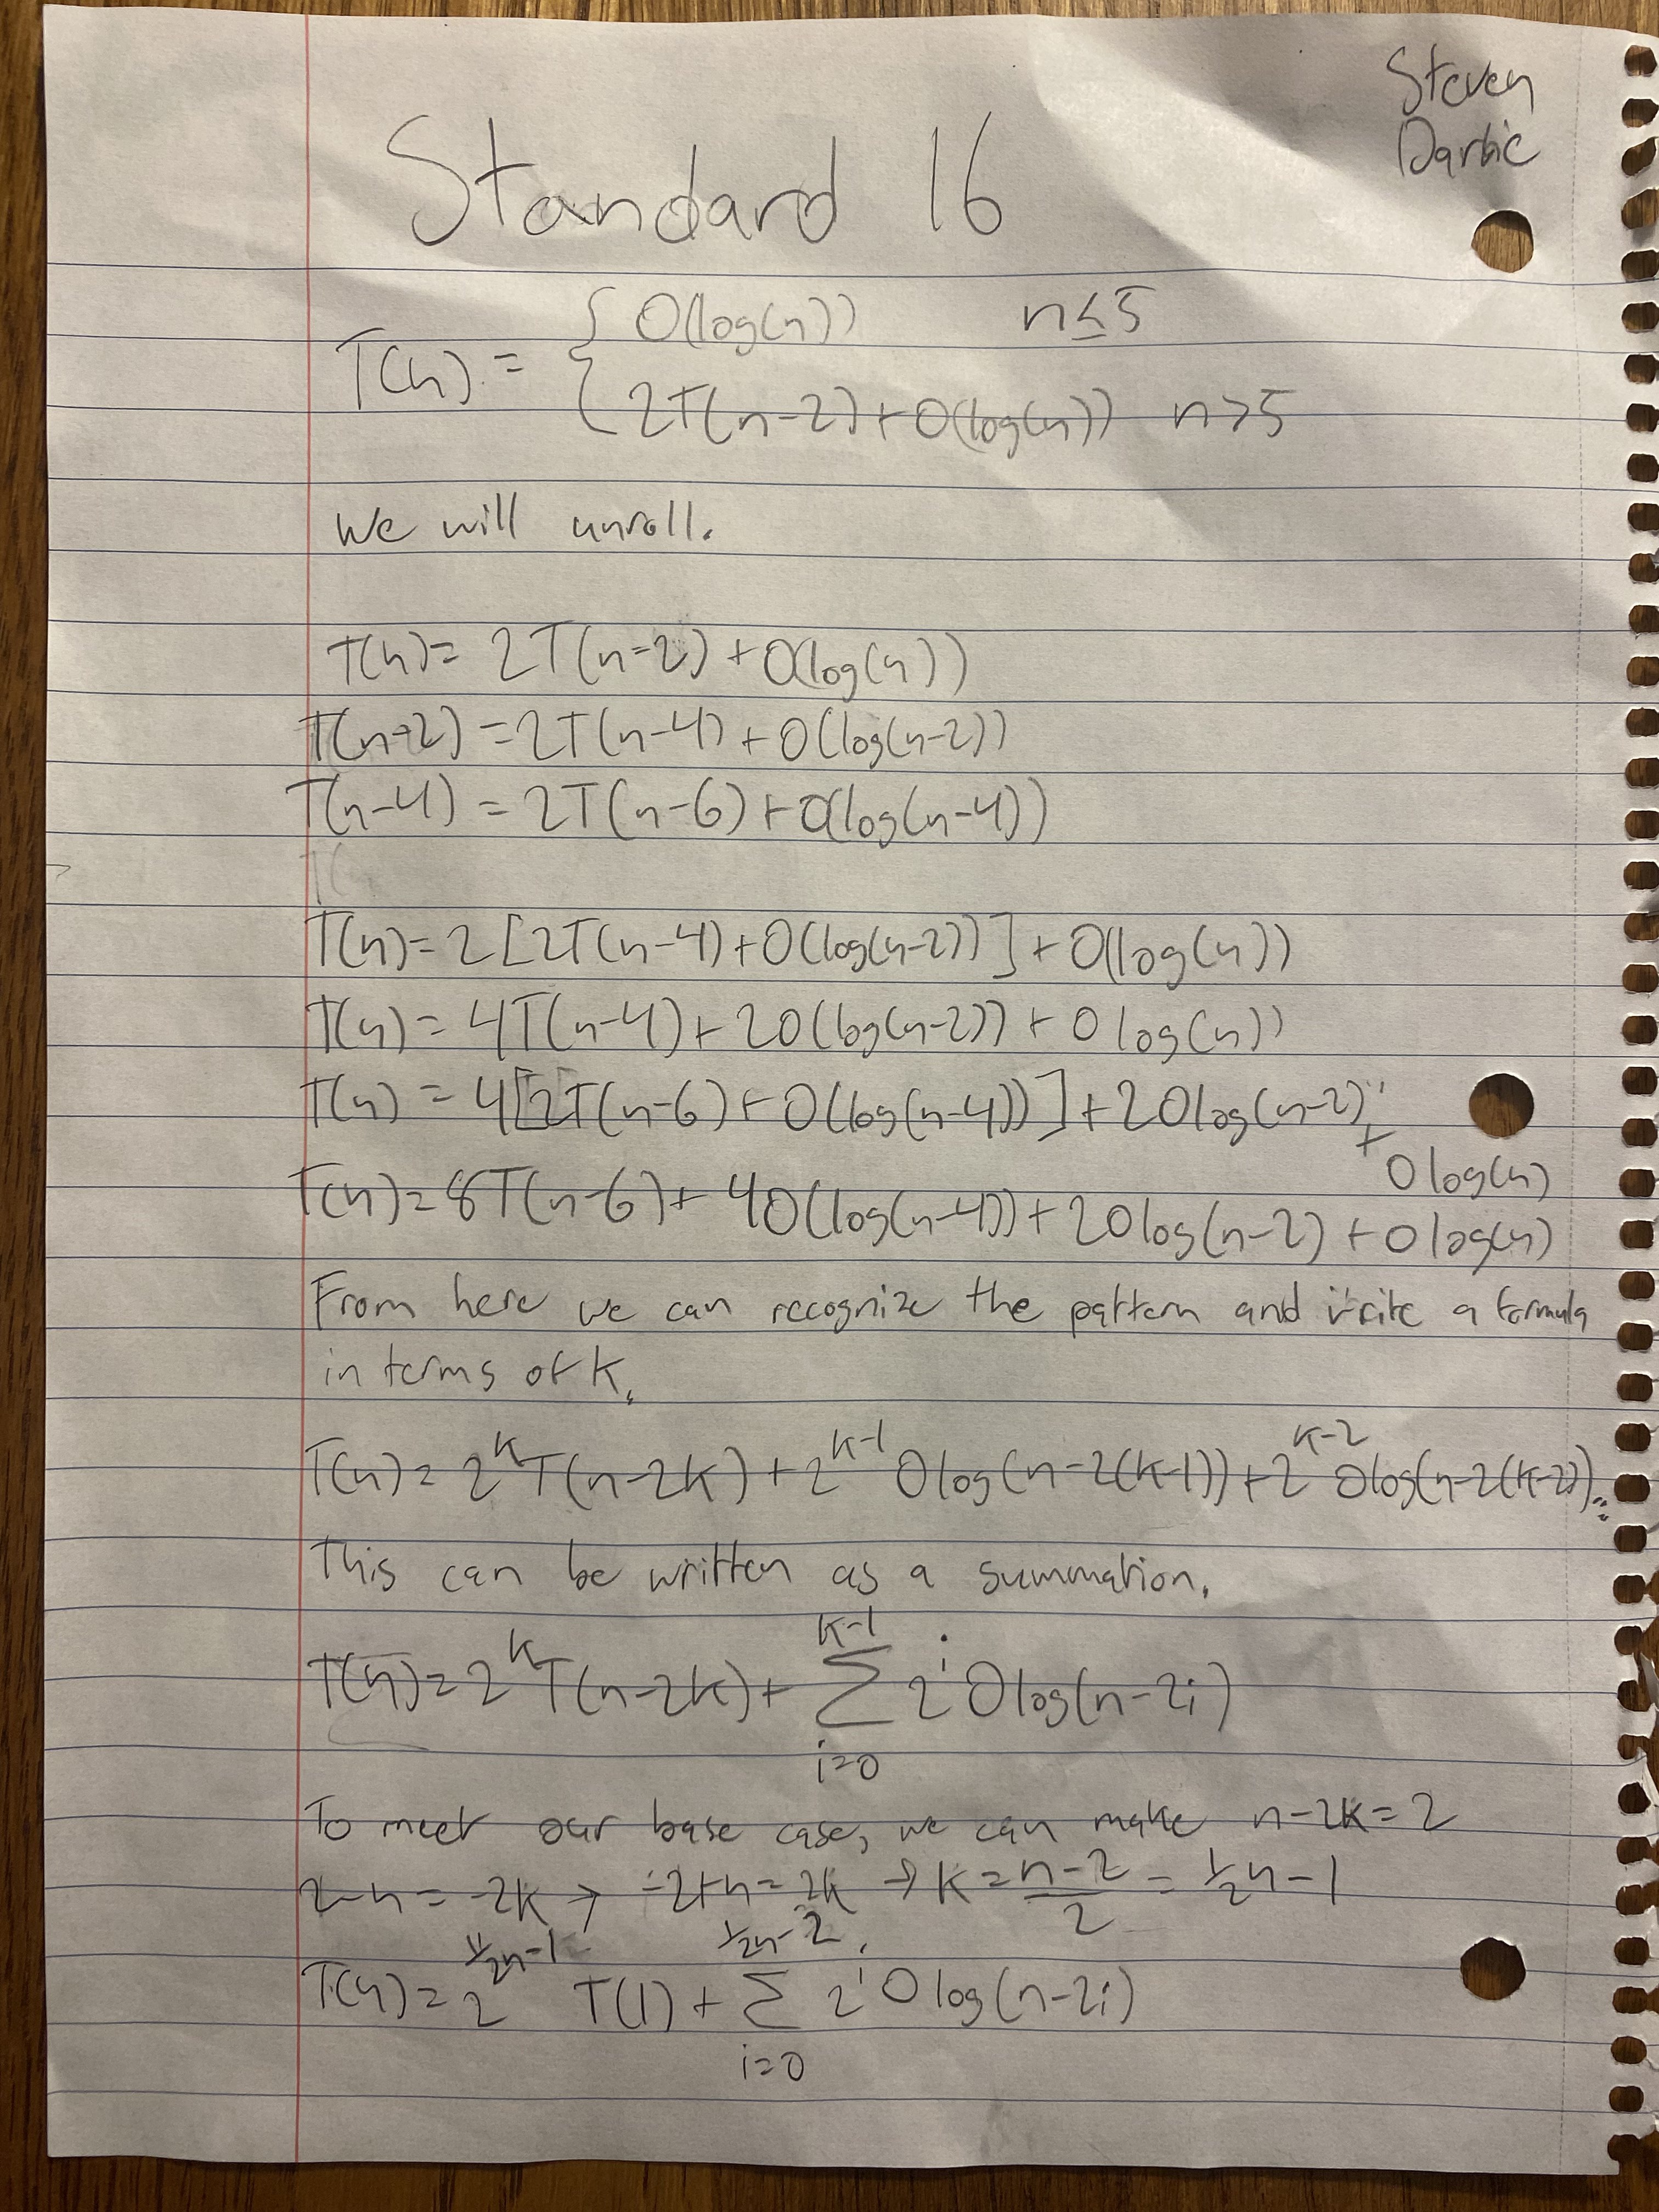 Steven
Darbie
Standard 16
T(n) = { O(log(n)) n≤5
{ 2T(n-2)+O(log(n)) n>5
We will unroll.
T(n)= 2T(n-2)+O(log(n))
T(n-2) = 2T(n-4)+O(log(n-2))
T(n-4) = 2T(n-6)+O(log(n-4))
T(n)=2[2T(n-4)+O(log(n-2))]+O(log(n))
T(n)=4T(n-4)+2O(log(n-2))+O log(n))
T(n) = 4[2T(n-6)+O(log(n-4))]+2Olog(n-2))+
Olog(n)
T(n)=8T(n-6)+4O(log(n-4))+2Olog(n-2)+Olog(n)
From here we can recognize the pattern and write a formula
in terms of K.
T(n)=2^K T(n-2K)+2^(K-1) Olog(n-2(K-1))+2^(K-2) Olog(n-2(K-2))...
This can be written as a summation.
T(n)=2^K T(n-2K)+ Σ_{i=0}^{K-1} 2^i Olog(n-2i)
To meet our base case, we can make n-2K=2
2-n=-2K → -2+n=2K → K=n-2/2=1/2n-1
T(n)=2^(1/2n-1) T(1)+ Σ_{i=0}^{1/2n-2} 2^i Olog(n-2i)